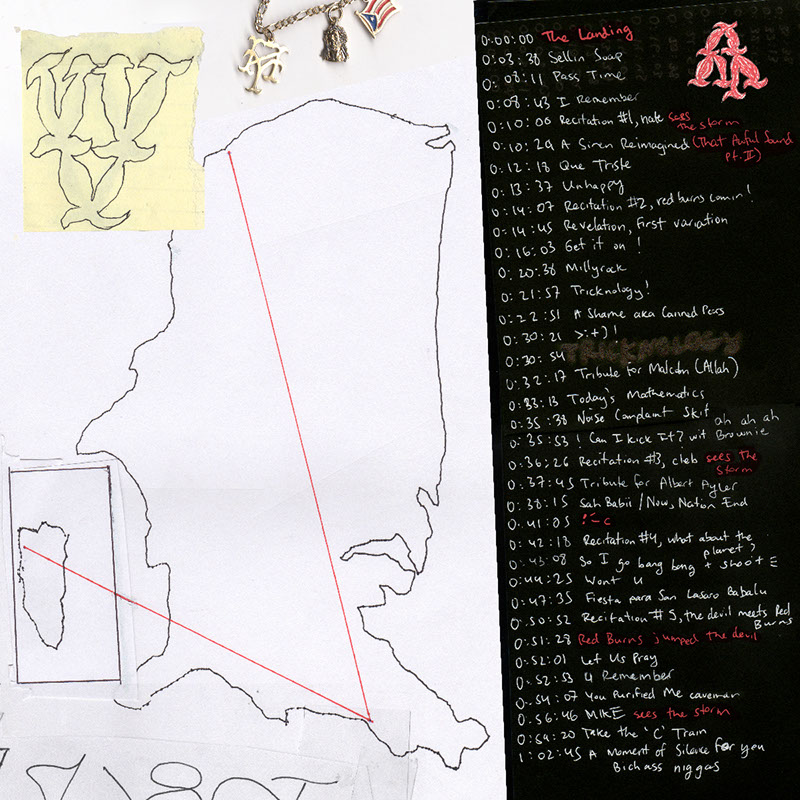 0:00:00 The Landing
0:03:38 Sellin Soap
0:08:11 Pass Time
0:08:43 I Remember
0:10:00 Recitation #1, nate sees
the storm
0:10:29 A Siren Reimagined (That Awful Sound
pt. II)
0:12:18 Que Triste
0:13:37 Unhappy
0:14:07 Recitation #2, red burns comin!
0:14:45 Revelation, First variation
0:16:03 Get it on!
0:20:38 Millyrock
0:21:57 Tricknology!
0:22:51 A Shame aka Canned Pears
0:30:21 >:+)!
0:30:54 TRICKNOLOGY
0:32:17 Tribute for Malcolm (Allah)
0:33:13 Today's Mathematics
0:35:38 Noise Complaint Skit
0:35:53 ! Can I kick It? wit ah ah ah
Brownie
0:36:26 Recitation #3, cleb sees the
storm
0:37:45 Tribute for Albert Ayler
0:38:15 Sah Babii / Now, Nation End
0:41:05 !'-c
0:42:18 Recitation #4, what about the
planet?
0:43:08 So I go bang bang + shoot E
0:44:25 Wont U
0:47:35 Fiesta para San Lasaro Babalu
0:50:52 Recitation #5, the devil meets Red
Burns
0:51:28 Red Burns jumped the devil
0:52:01 Let Us Pray
0:52:53 4 Remember
0:54:07 You Purified Me caveman
0:56:46 MIKE sees the storm
0:59:20 Take the 'C' Train
1:02:45 A Moment of Silence for you
Bichass niggas